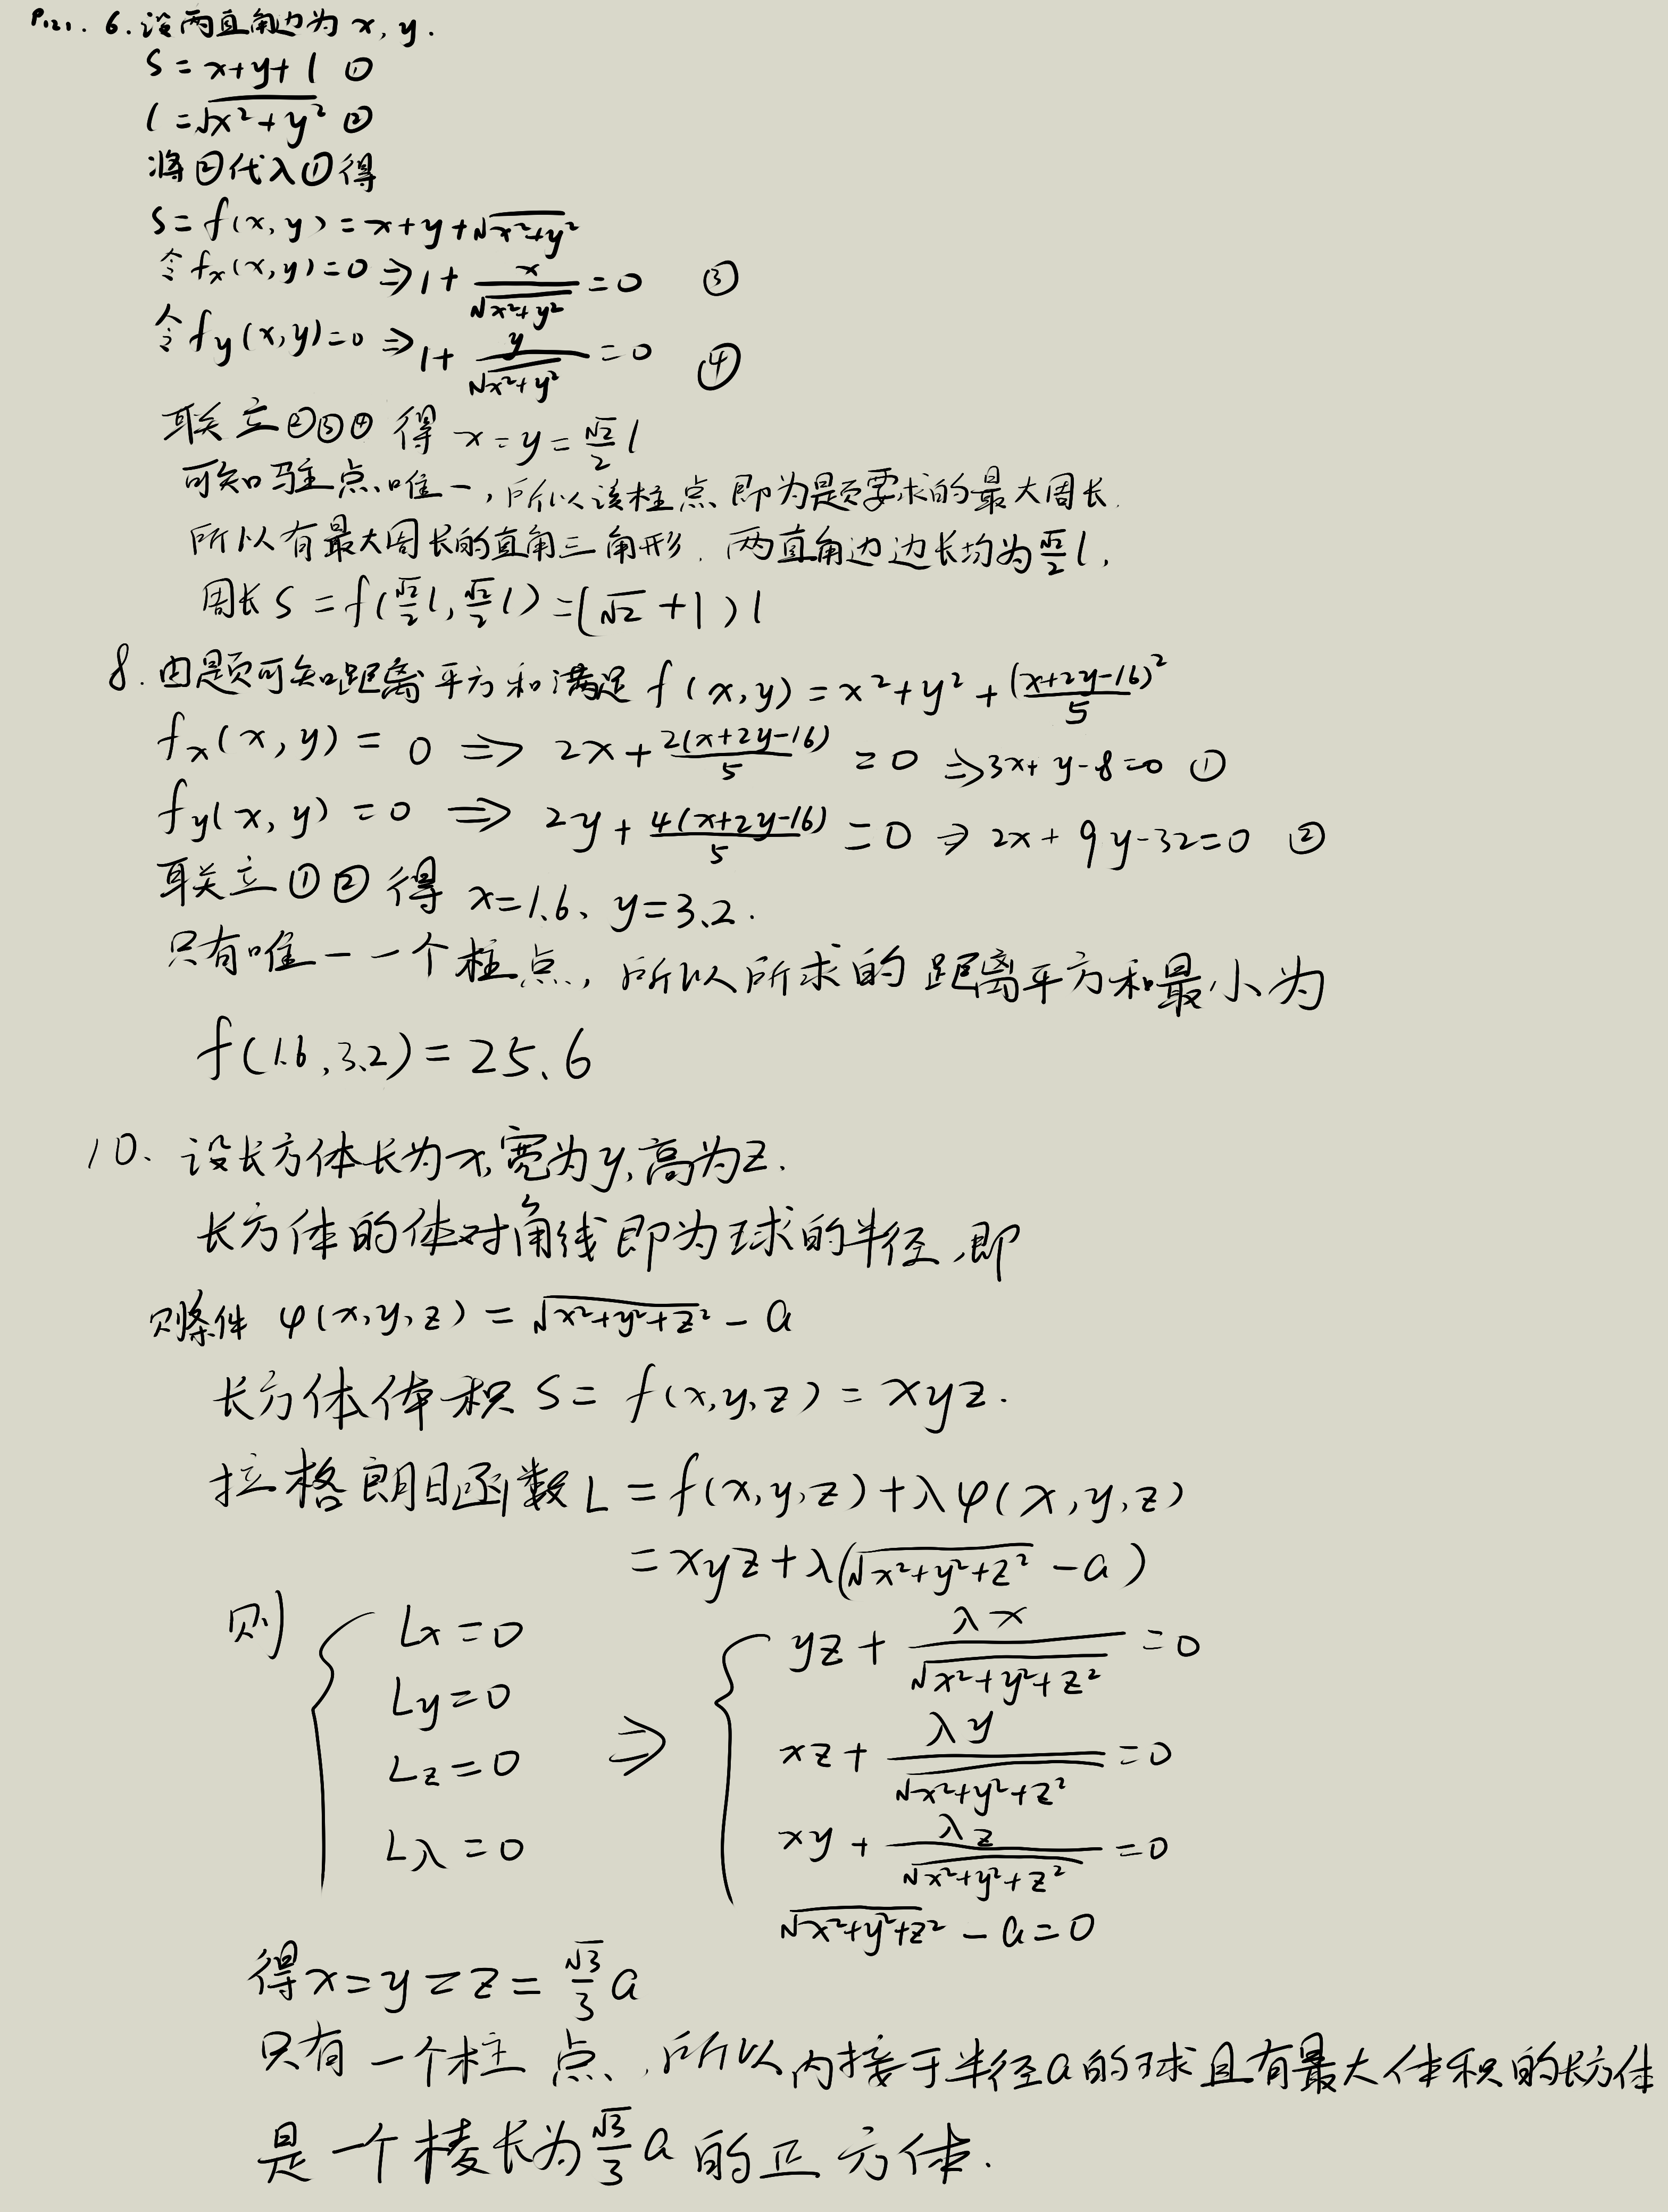 P121. 6. 设两直角边为 x, y.
S = x+y+l ①
l = √x²+y² ②
将②代入①得
S = f(x, y) = x+y+√x²+y²
令 fx(x, y)=0 ⇒ 1+ x/√x²+y² = 0 ③
令 fy(x, y)=0 ⇒ 1+ y/√x²+y² = 0 ④
联立②③④ 得 x = y = √2/2 l
可知驻点唯一, 所以该柱点即为题要求的最大周长.
所以有最大周长的直角三角形. 两直角边边长均为√2/2 l,
周长 S = f(√2/2 l, √2/2 l) = (√2+1) l
8. 由题可知距离平方和满足 f(x, y) = x²+y²+ (x+2y-16)²/5
fx(x, y) = 0 ⇒ 2x+ 2(x+2y-16)/5 = 0 ⇒ 3x+y-8=0 ①
fy(x, y) = 0 ⇒ 2y+ 4(x+2y-16)/5 = 0 ⇒ 2x+9y-32=0 ②
联立①②得 x=1.6、y=3.2.
只有唯一一个柱点, 所以所求的距离平方和最小为
f(1.6, 3.2) = 25.6
10、设长方体长为x,宽为y,高为z.
长方体的体对角线即为球的半径,即
则条件 φ(x, y, z) = √x²+y²+z² - a
长方体体积 S = f(x, y, z) = xyz.
拉格朗日函数 L = f(x, y, z)+λφ(x, y, z)
= xyz+λ(√x²+y²+z² - a)
则 { Lx=0 ⇒ { yz+ λx/√x²+y²+z² = 0
Ly=0 xz+ λy/√x²+y²+z² = 0
Lz=0 xy+ λz/√x²+y²+z² = 0
Lλ=0 √x²+y²+z² - a = 0
得 x=y=z= √3/3 a
只有一个柱点,所以内接于半径a的球且有最大体积的长方体
是一个棱长为√3/3 a 的正方体.